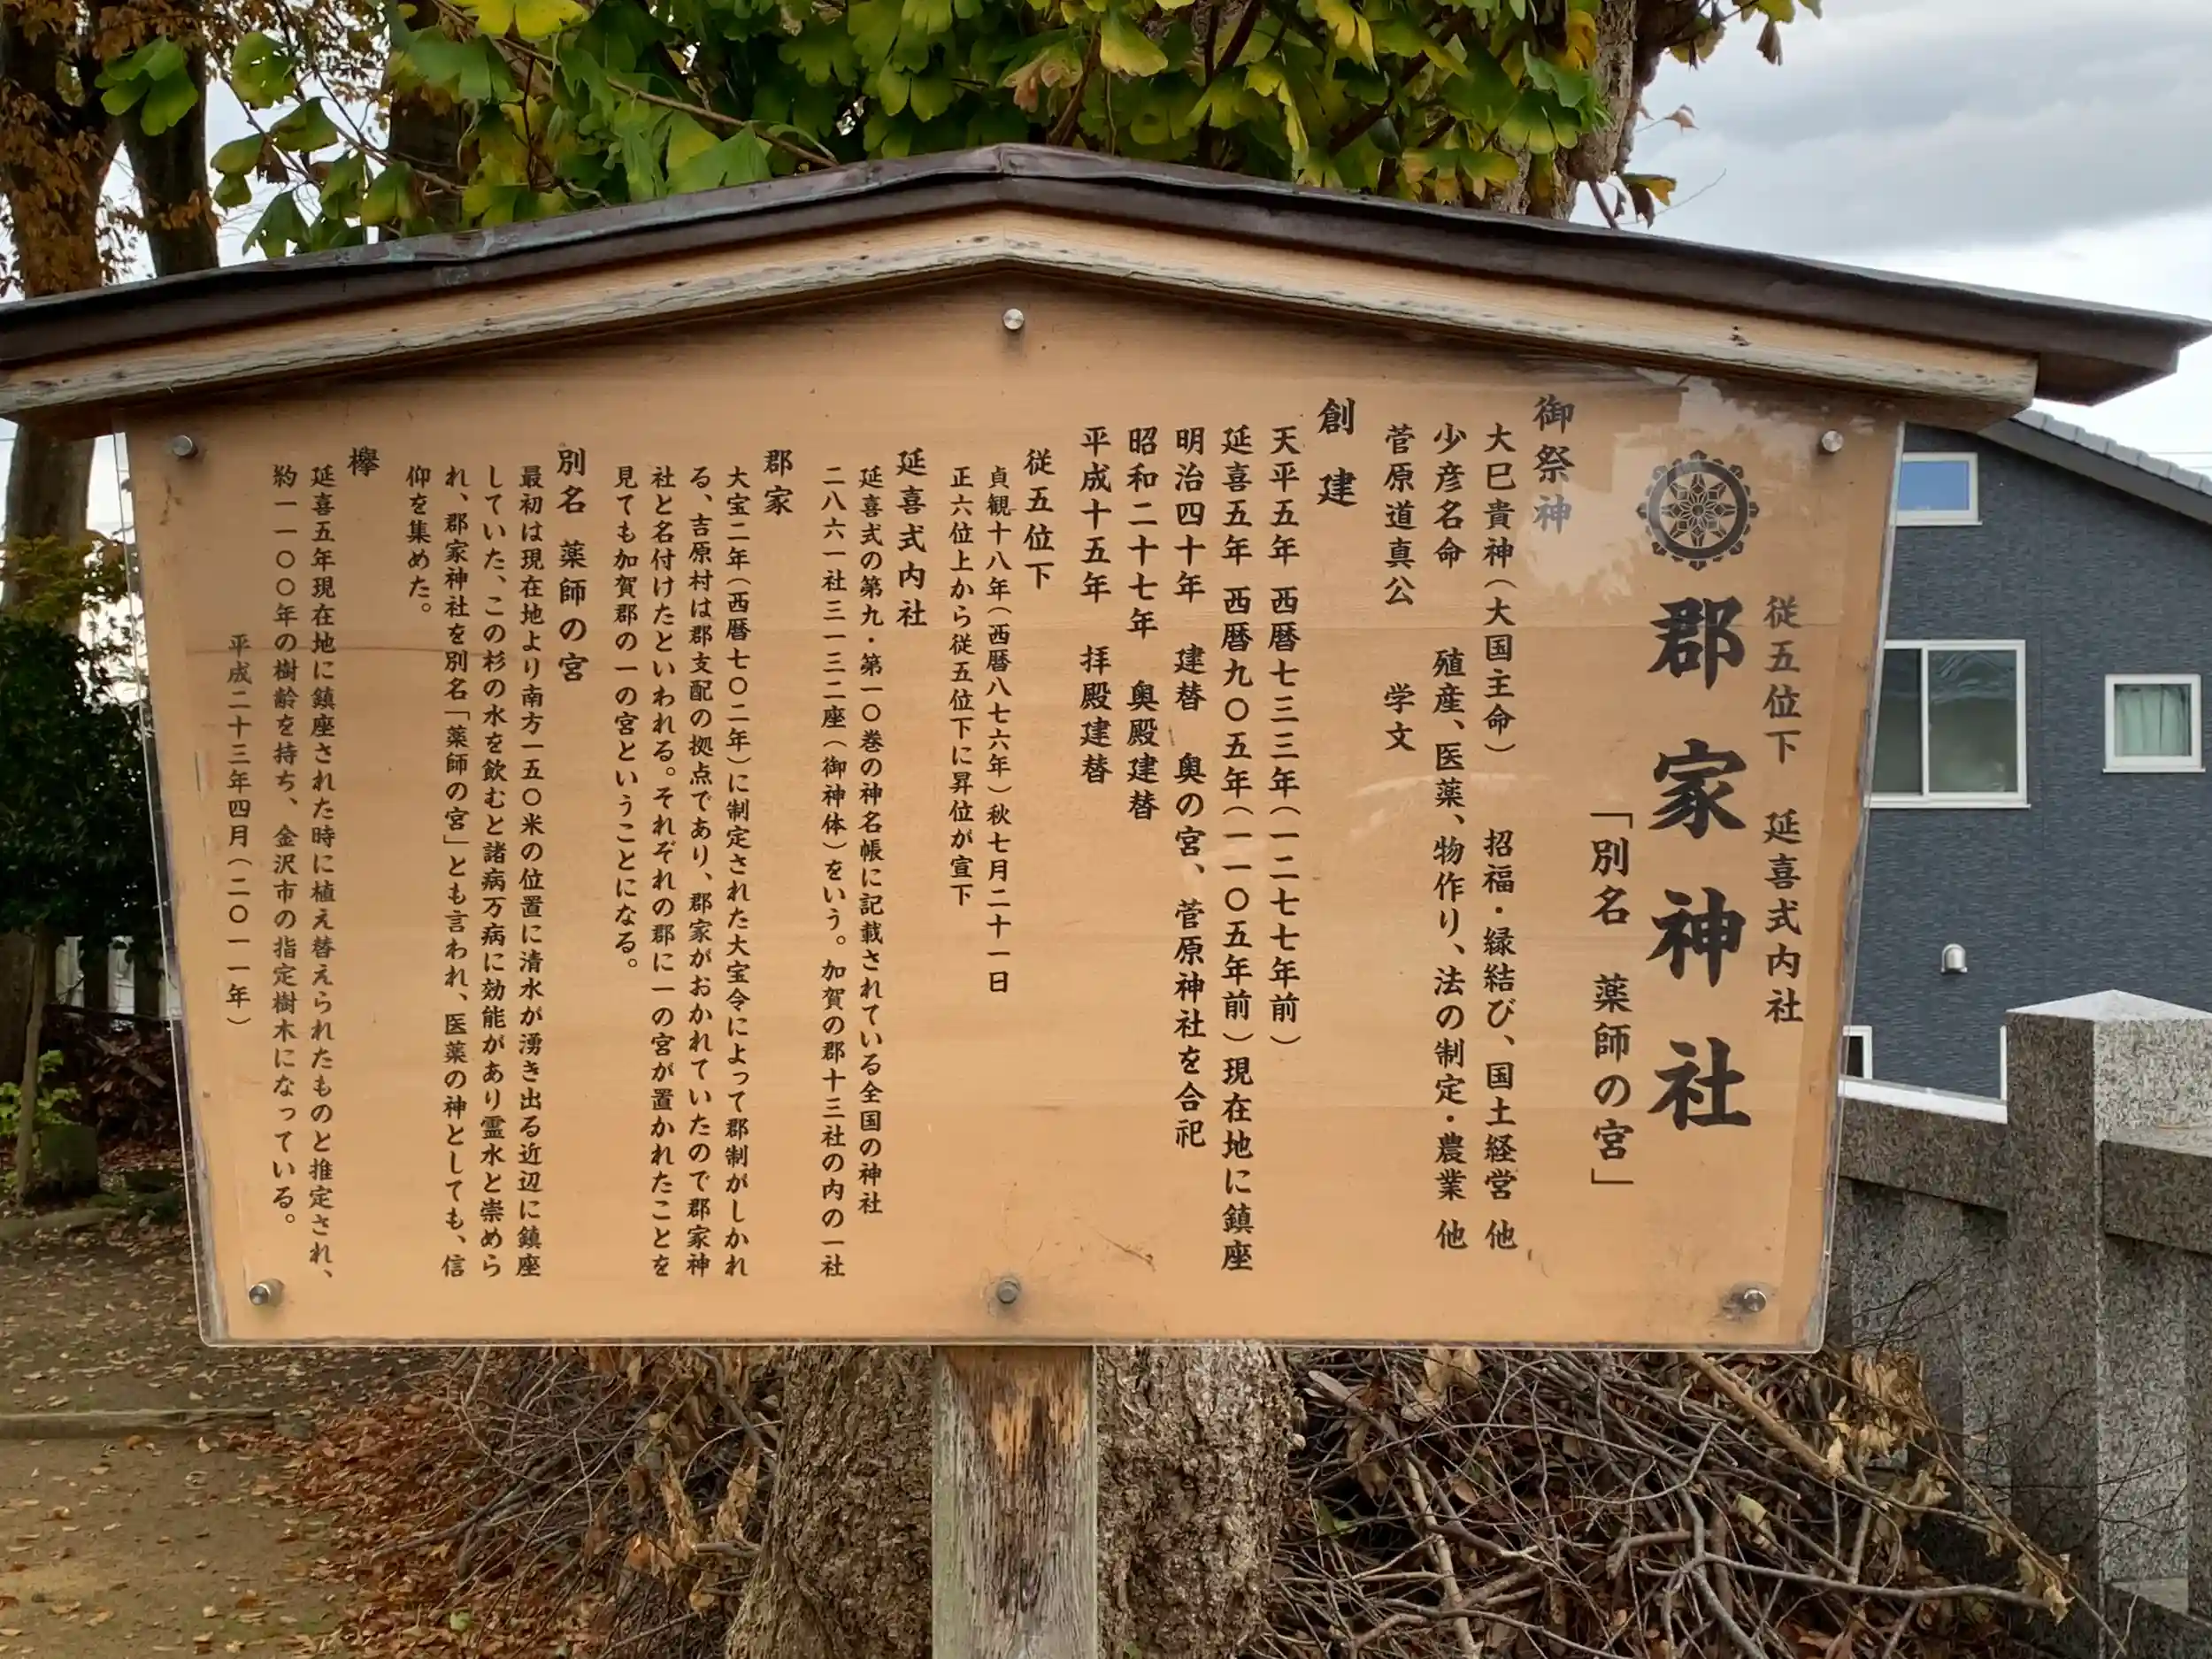 従五位下 延喜式内社
郡家神社
「別名 薬師の宮」
御祭神
大巳貴神(大国主命) 招福・縁結び、国土経営 他
少彦名命 殖産、医薬、物作り、法の制定・農業 他
菅原道真公 学文
創建
天平五年 西暦七三三年(一二七七年前)
延喜五年 西暦九〇五年(一一〇五年前)現在地に鎮座
明治四十年 建替 奥の宮、菅原神社を合祀
昭和二十七年 奥殿建替
平成十五年 拝殿建替
従五位下
貞観十八年(西暦八七六年)秋七月二十一日
正六位上から従五位下に昇位が宣下
延喜式内社
延喜式の第九・第一〇巻の神名帳に記載されている全国の神社
二八六一社三一三二座(御神体)をいう。加賀の郡十三社の内の一社
郡家
大宝二年(西暦七〇二年)に制定された大宝令によって郡制がしかれ
る、吉原村は郡支配の拠点であり、郡家がおかれていたので郡家神
社と名付けたといわれる。それぞれの郡に一の宮が置かれたことを
見ても加賀郡の一の宮ということになる。
別名 薬師の宮
最初は現在地より南方一五〇米の位置に清水が湧き出る近辺に鎮座
していた、この杉の水を飲むと諸病万病に効能があり霊水と崇めら
れ、郡家神社を別名「薬師の宮」とも言われ、医薬の神としても、信
仰を集めた。
欅
延喜五年現在地に鎮座された時に植え替えられたものと推定され、
約一一〇〇年の樹齢を持ち、金沢市の指定樹木になっている。
平成二十三年四月(二〇一一年)